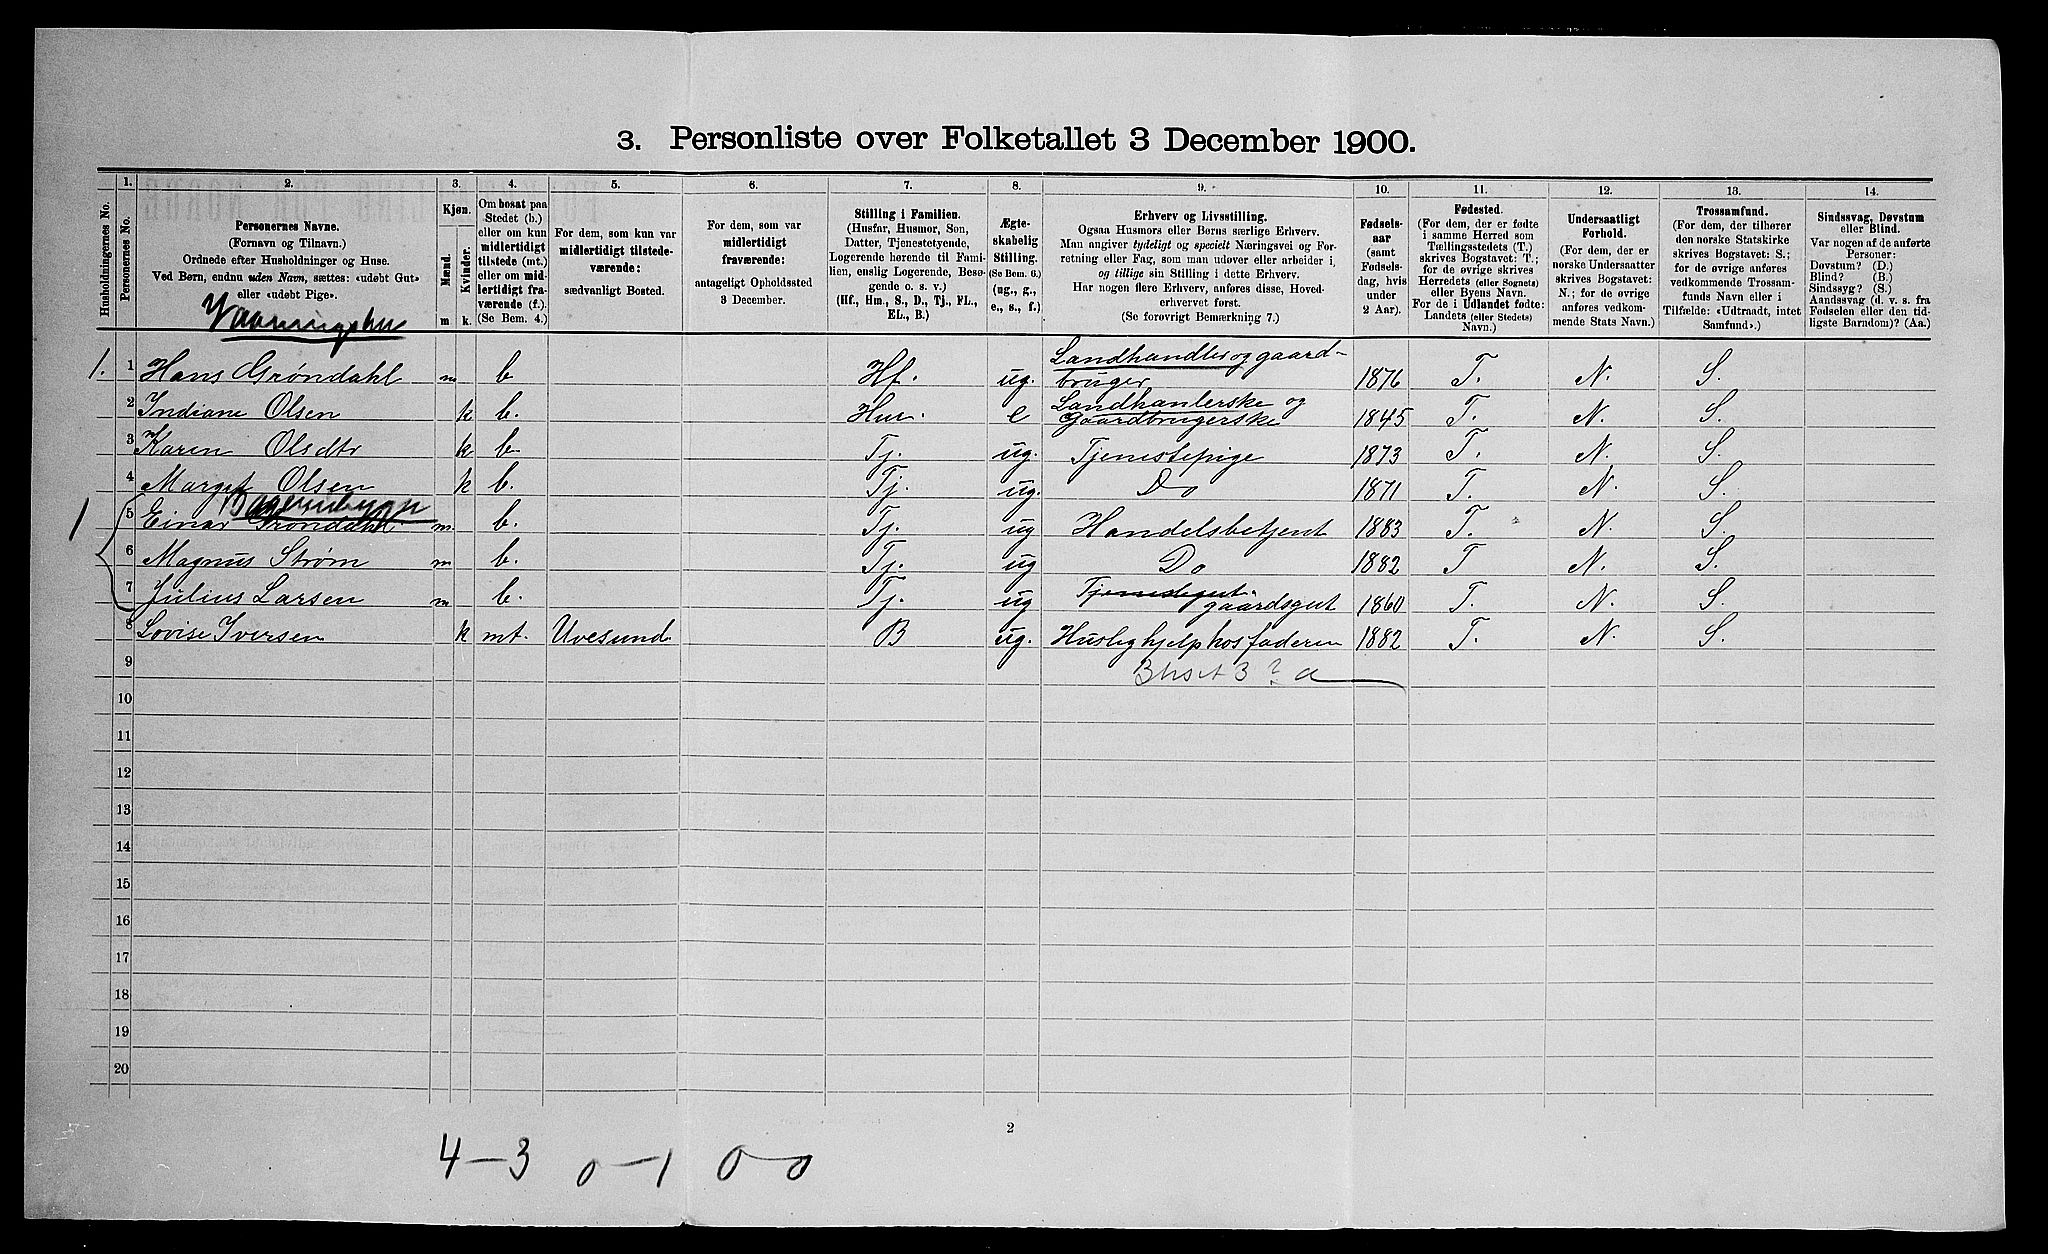 3. Personliste over Folketallet 3 December 1900.
1. 2. 3. 4. 5. 6. 7. 8. 9. 10. 11. 12. 13. 14.
Husholdningernes No.
Personernes No.
Personernes Navne.
(Fornavn og Tilnavn.)
Ordnede efter Husholdninger og Huse.
Ved Børn, endnu uden Navn, sættes: «udøbt Gut»
eller «udøbt Pige».
Kjøn.
Mænd.
Kvinder.
m k.
Om bosat paa
Stedet (b.)
eller om kun
midlertidigt
tilstede (mt.)
eller om mid-
lertidigt fra-
værende (f.).
(Se Bem. 4.)
For dem, som kun var
midlertidigt tilstede-
værende:
sædvanligt Bosted.
For dem, som var
midlertidigt
fraværende:
antageligt Opholdssted
3 December.
Stilling i Familien.
(Husfar, Husmor, Søn,
Datter, Tjenestetyende,
Logerende hørende til Fami-
lien, enslig Logerende, Besø-
gende o. s. v.)
(Hf., Hm., S., D., Tj., FL.,
EL., B.)
Ægte-
skabelig
Stilling.
(Se Bem. 6.)
(ug., g.,
e., s., f.)
Erhverv og Livsstilling.
Ogsaa Husmors eller Børns særlige Erhverv.
Man angiver tydeligt og specielt Næringsvei og For-
retning eller Fag, som man udøver eller arbeider i,
og tillige sin Stilling i dette Erhverv.
Har nogen flere Erhverv, anføres disse, Hoved-
erhvervet først.
(Se forøvrigt Bemærkning 7.)
Fødsels-
aar
(samt
Fødsels-
dag, hvis
under
2 Aar).
Fødested.
(For dem, der er fødte
i samme Herred som
Tællingsstedets (T.)
skrives Bogstavet: T.;
for de øvrige skrives
Herredets (eller Sognets)
eller Byens Navn.
For de i Udlandet fødte:
Landets (eller Stedets)
Navn.)
Undersaatligt
Forhold.
(For dem, der er
norske Undersaatter
skrives Bogstavet:
N.; for de øvrige
anføres vedkom-
mende Stats Navn.)
Trossamfund.
(For dem, der tilhører
den norske Statskirke
skrives Bogstavet: S.;
for de øvrige anføres
vedkommende Trossam-
funds Navn eller i
Tilfælde: «Udtraadt, intet
Samfund».)
Sindssvag, Døvstum
eller Blind.
Var nogen af de anførte
Personer:
Døvstum? (D.)
Blind? (B.)
Sindssyg? (S.)
Aandssvag (d. v. s. fra
Fødselen eller den tid-
ligste Barndom)? (Aa.)
1. 1 Hans Grøndahl m b Hf. ug. Landhandler og gaard-
bruger 1876 T. N. S.
2 Indiane Olsen k b. Hus. e Landhanlerske og
Gaardbrugerske 1845 T. N. S.
3 Karen Olsdtr k b. Tj. ug. Tjenestepige 1873 T. N. S.
4 Margit Olsen k b. Tj. ug. Do 1871 T. N. S.
1 5 Einar Grøndahl. m b. Tj. ug Handelsbetjent 1883 T. N. S.
6 Magnus Strøm m b. Tj. ug Do 1882 T N. S.
7 Julius Larsen m b. Tj. ug Tjenestegut gaardsgut 1860 T. N. S.
8 Lovise Iversen k mt. Uvesund B ug. Huslig hjelp hos faderen 1882 T. N. S.
9
10
11
12
13
14
15
16
17
18
19
20
2
4-3 0-1 0-0